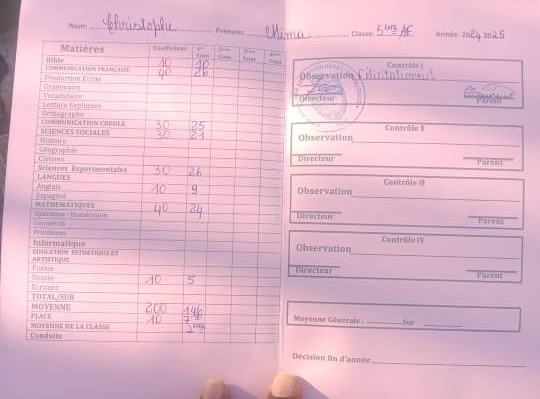 Nom: Christophe Prénom: Mima Classe: 5ème AF Année: 2024 2025
Matières Coefficient 1er Cont 2ème Cont 3ème Cont 4ème Cont
Bible 10 10
COMMUNICATION FRANÇAISE 40 26
Production Ecrite
Grammaire
Vocabulaire
Lecture Expliquée
Orthographe
COMMUNICATION CREOLE 30 25
SCIENCES SOCIALES 30 21
Histoire
Géographie
Civisme
Sciences Experimentales 30 26
LANGUES
Anglais 10 9
Espagnol
MATHEMATIQUES 40 24
Opération - Numération
Géométrie
Problèmes
Informatique
EDUCATION ESTHETIQUE ET
ARTISTIQUE
Poésie
Dessin 10 5
Ecriture
TOTAL/SUR 200 146
MOYENNE 10
PLACE
MOYENNE DE LA CLASSE
Conduite
Contrôle I
Observation Félicitations!
Directeur Parent
Contrôle II
Observation
Directeur Parent
Contrôle III
Observation
Directeur Parent
Contrôle IV
Observation
Directeur Parent
Moyenne Générale: Sur
Décision fin d'année